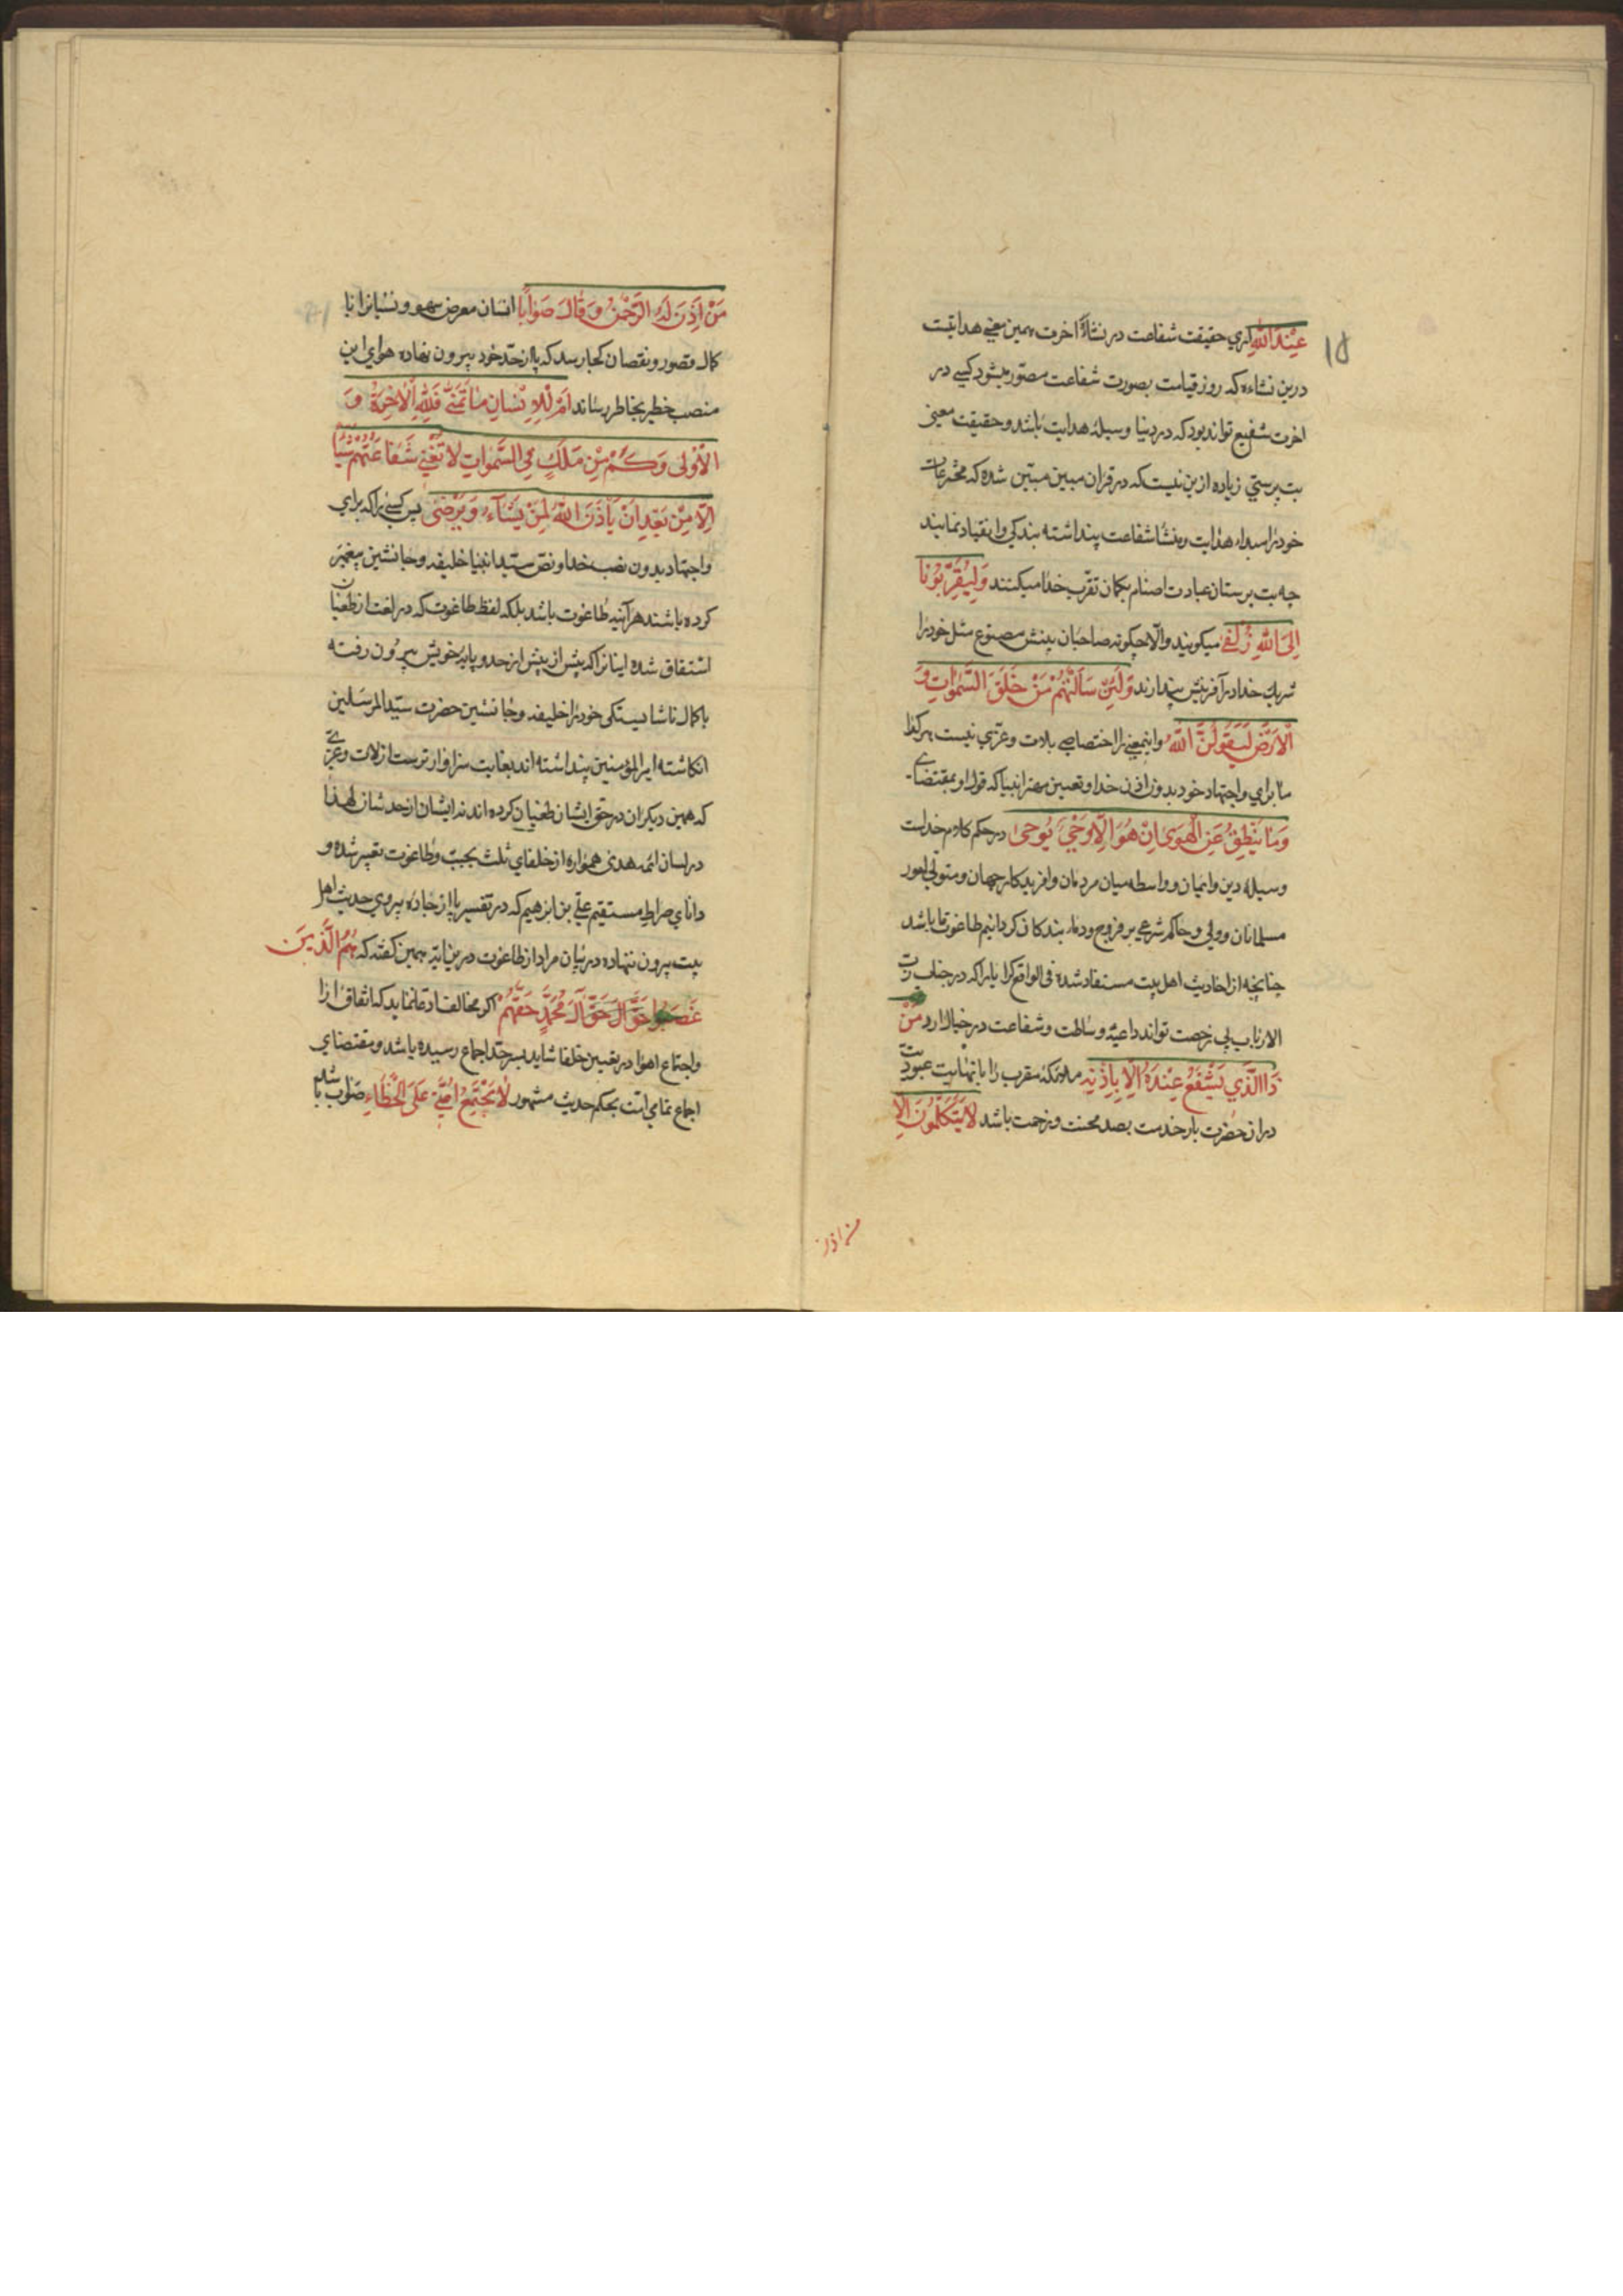 ۱۵
عِنْدَ اللهِ آری حقیقت شفاعت در نشاۀ اخرت همین معنی هدایتست
درین نشاءه که روز قیامت بصورت شفاعت مصوّر میشود کسی در
اخرت شفیع تواند بود که در دنیا وسیلۀ هدایت باشد و حقیقت معنی
بت پرستی زیاده ازین نیست که در قران مبین مبیّن شده که مخترعات
خود را مبداء هدایت و منشا شفاعت پنداشته بندکی و انقیاد نمایند
چه بت پرستان عبادت اصنام بکمان تقرّب خدا میکنند وَلِیُقَرِّبُونَا
اِلَی اللهِ زُلْفیٰ میکویند والّا چکونه صاحبان بینش مصنوع مثل خود را
شریك خدا در آفرینش پندارند وَلَئِنْ سَاَلْتَهُمْ مَنْ خَلَقَ السَّمٰوَاتِ وَ
الْاَرْضَ لَیَقُولُنَّ اللهُ و اینمعنی را اختصاصی بلات و عزّی نیست هر کرا
ما برای و اجتهاد خود بدون اذن خدا و تعیین مهتر انبیا که قول او بمقتضای
وَمَا یَنْطِقُ عَنِ الْهَوَیٰ اِنْ هُوَ اِلَّا وَحْیٌ یُوحیٰ در حکم کلام خداست
وسیلۀ دین و ایمان و واسطه میان مردمان و افریدکار جهان و متولی امور
مسلمانان و ولی و حاکم شرعی بر فروج و دماء بندکان کردانیم طاغوت ما باشد
چنانچه از احادیث اهل بیت مستفاد شده فی الواقع کرا یارا که در جناب ربّ
الارباب بی رخصت تواند داعیۀ وساطت و شفاعت در خیال ارد مَنْ
ذَا الَّذِی یَشْفَعُ عِنْدَهُ اِلَّا بِاِذْنِهِ ملائکۀ مقرب را با نهایت عبودیت
در ان حضرت بار خدمت بصد محنت و زحمت باشد لَا یَتَکَلَّمُونَ اِلَّا
من اذن
مَنْ اَذِنَ لَهُ الرَّحْمٰنُ وَقَالَ صَوَابًا انسان معرض سهو و نسیانرا با
کمال قصور و نقصان کجا رسد که پا از حدّ خود بیرون نهاده هوای این
منصب خطیر بخاطر رساند اَمْ لِلْاِنْسَانِ مَا تَمَنّیٰ فَلِلّٰهِ الْاٰخِرَةُ وَ
الْاُوْلٰی وَکَمْ مِنْ مَلَكٍ فِی السَّمٰوَاتِ لَا تُغْنِی شَفَاعَتُهُمْ شَیْئًا
اِلَّا مِنْ بَعْدِ اَنْ یَاْذَنَ اللهُ لِمَنْ یَشَآءُ وَیَرْضیٰ پس کسی را که برای
و اجتهاد بدون نصب خدا و نصّ سیّد انبیا خلیفه و جانشین پیغمبر
کرده باشند هر آئینه طاغوت باشد بلکه لفظ طاغوت که در لغت از طغیان
اشتقاق شده اینانرا که پیش از پیش از حد و پایۀ خویش بیرون رفته
با کمال ناشایستکی خود را خلیفه و جانشین حضرت سیّد المرسلین
انکاشته امیر المؤمنین پنداشته اند بغایت سزاوارترست از لات و عزّی
که همین دیکران در حق ایشان طغیان کرده اند نه ایشان از حد شان لهذا
در لسان ائمه هدی همواره از خلفای ثلث بجبت و طاغوت تعبیر شده و
دانای صراط مستقیم علی بن ابرهیم که در تفسیر پا از جادۀ پیروی حدیث اهل
بیت بیرون ننهاده در بیان مراد از طاغوت درین ایه همین کفته که هُمُ الَّذِینَ
غَصَبُوا آلَ مُحَمَّدٍ حَقَّهُمْ اکر مخالف ادّعا نماید که اتفاق ارا
و اجتماع اهوا در تعیین خلفا شاید بسرحدّ اجماع رسیده باشد و مقتضای
اجماع تمامی امّت بحکم حدیث مشهور لَا یَجْتَمِعُ اُمَّتِی عَلَی الْخَطَاءِ صواب باشد